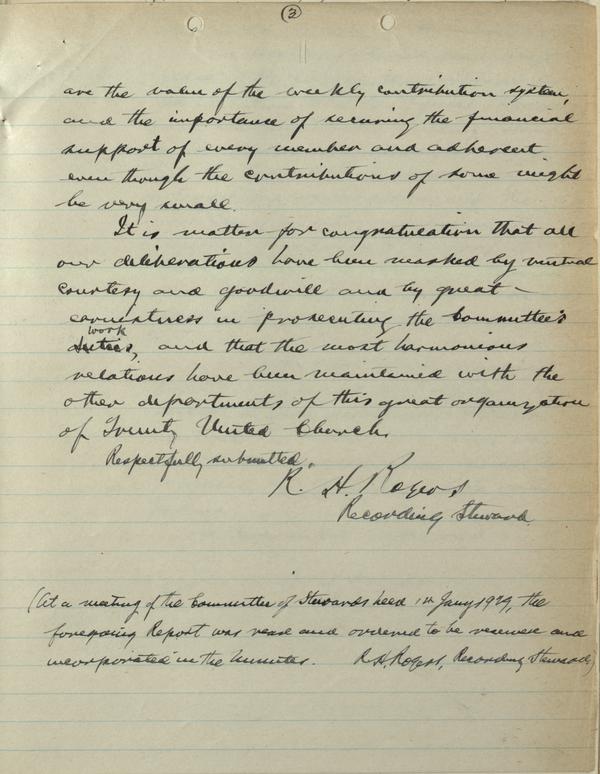 (3)
are the value of the weekly contribution system,
and the importance of securing the financial
support of every member and adherent
even though the contributions of some might
be very small.
It is matter for congratulation that all
our deliberations have been marked by mutual
courtesy and goodwill and by great
earnestness in prosecuting the Committee's
work
duties, and that the most harmonious
relations have been maintained with the
other departments of this great organization
of Trinity United Church.
Respectfully submitted.
R. H. Rogers
Recording Steward.
(At a meeting of the Committee of Stewards held Jany 1929, the
foregoing Report was read and ordered to be received and
incorporated in the Minutes. R.H. Rogers, Recording Steward)